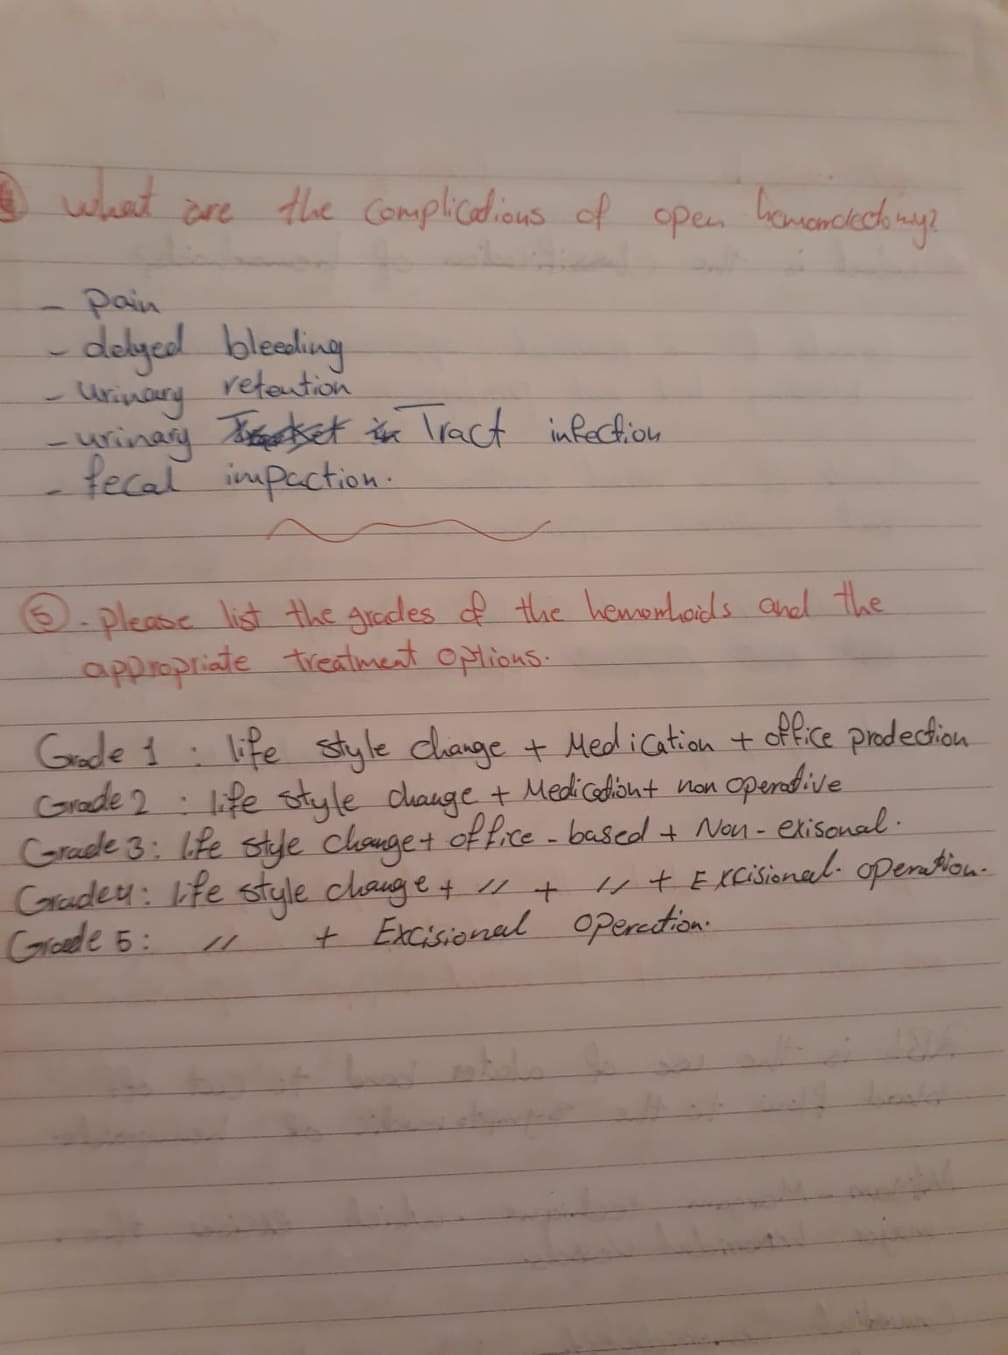 What are the complications of open hemorrdectomy?
- Pain
- delyed bleeding
- Urinary retention
- urinary Tract infection
- fecal impaction.
⑤. please list the grades of the hemorrhoids and the
appropriate treatment options.
Grade 1 : life style change + Medication + office prodection
Grade 2 : life style change + Medication + non operative
Grade 3: life style change + office-based + Non-exisonal.
Grade 4: life style change + 〃 + 〃 + Excisional operation.
Grade 5: 〃 + Excisional operation.